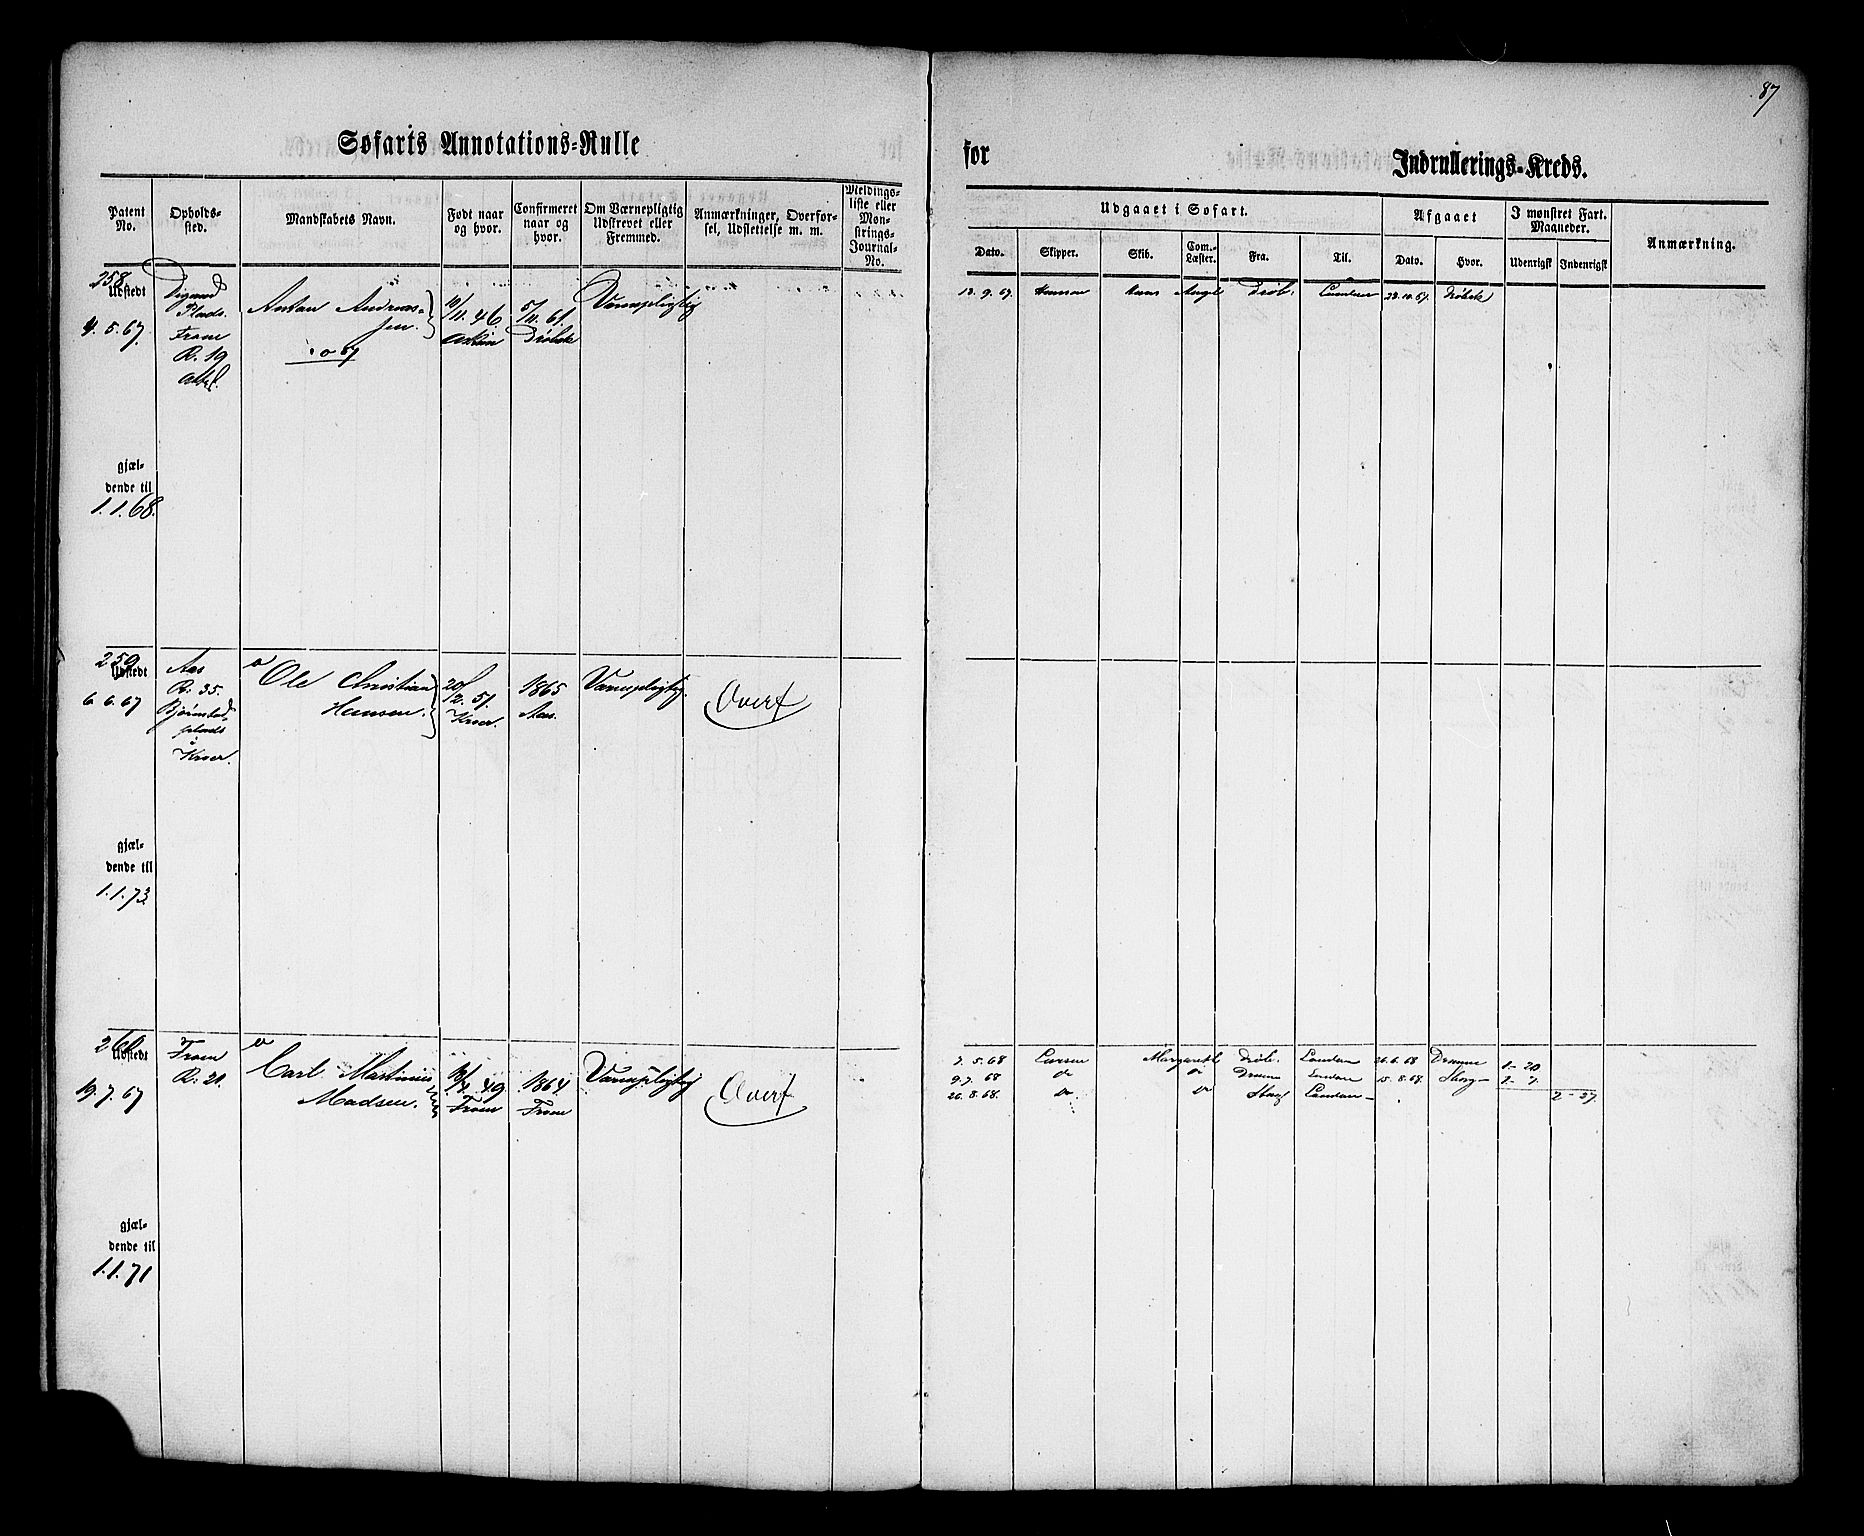 87
Søfarts Annotations-Rulle
for
Indrullerings-Kreds.
Patent No.
Opholds-sted.
Mandskabets Navn.
Født naar og hvor.
Confirmeret naar og hvor.
Om Værnepligtig Udskrevet eller Fremmed.
Anmærkninger, Overførsel, Udslettelse m. m.
Meldings-liste eller Mønstrings-Journal-No.
Udgaaet i Søfart.
Afgaaet
I mønstret Fart. Maaneder.
Anmærkning.
Dato.
Skipper.
Skib.
Com.-Læster.
Fra.
Til.
Dato.
Hvor.
Udenrigsk
Indenrigsk
258.
Udstedt
4. 5. 67.
Digerud
Plads.
Froen
R. 19
Anton Andreas-
sen.
67
19/11. 46.
Askim
5/11. 61.
Drøbak
Værnepligtig
12. 9. 67.
Hansen
Hans
Drøb.
London
Drøbak
gjæl-
dende til
1. 1. 68.
259.
Udstedt
6. 6. 67
Aas
R. 35.
plads
Kroer.
Ole Christian
Hansen.
20/2. 51.
Kroer.
1865
Aas.
Værnepligtig
Overf
gjæl-
dende til
1. 1. 73.
260.
Udstedt
19. 7. 67
Froen
R. 21.
Carl Martinius
Madsen.
49.
Froen
1864.
Froen
Værnepligtig
Overf
7. 5. 68
Larsen
Margareth
Drøb.
London
26. 6. 68
1- 20
9. 7. 68
do
do
London
15. 8. 68.
26. 8. 68.
do
do
London
2 - 27.
gjæl-
dende til
1. 1. 71